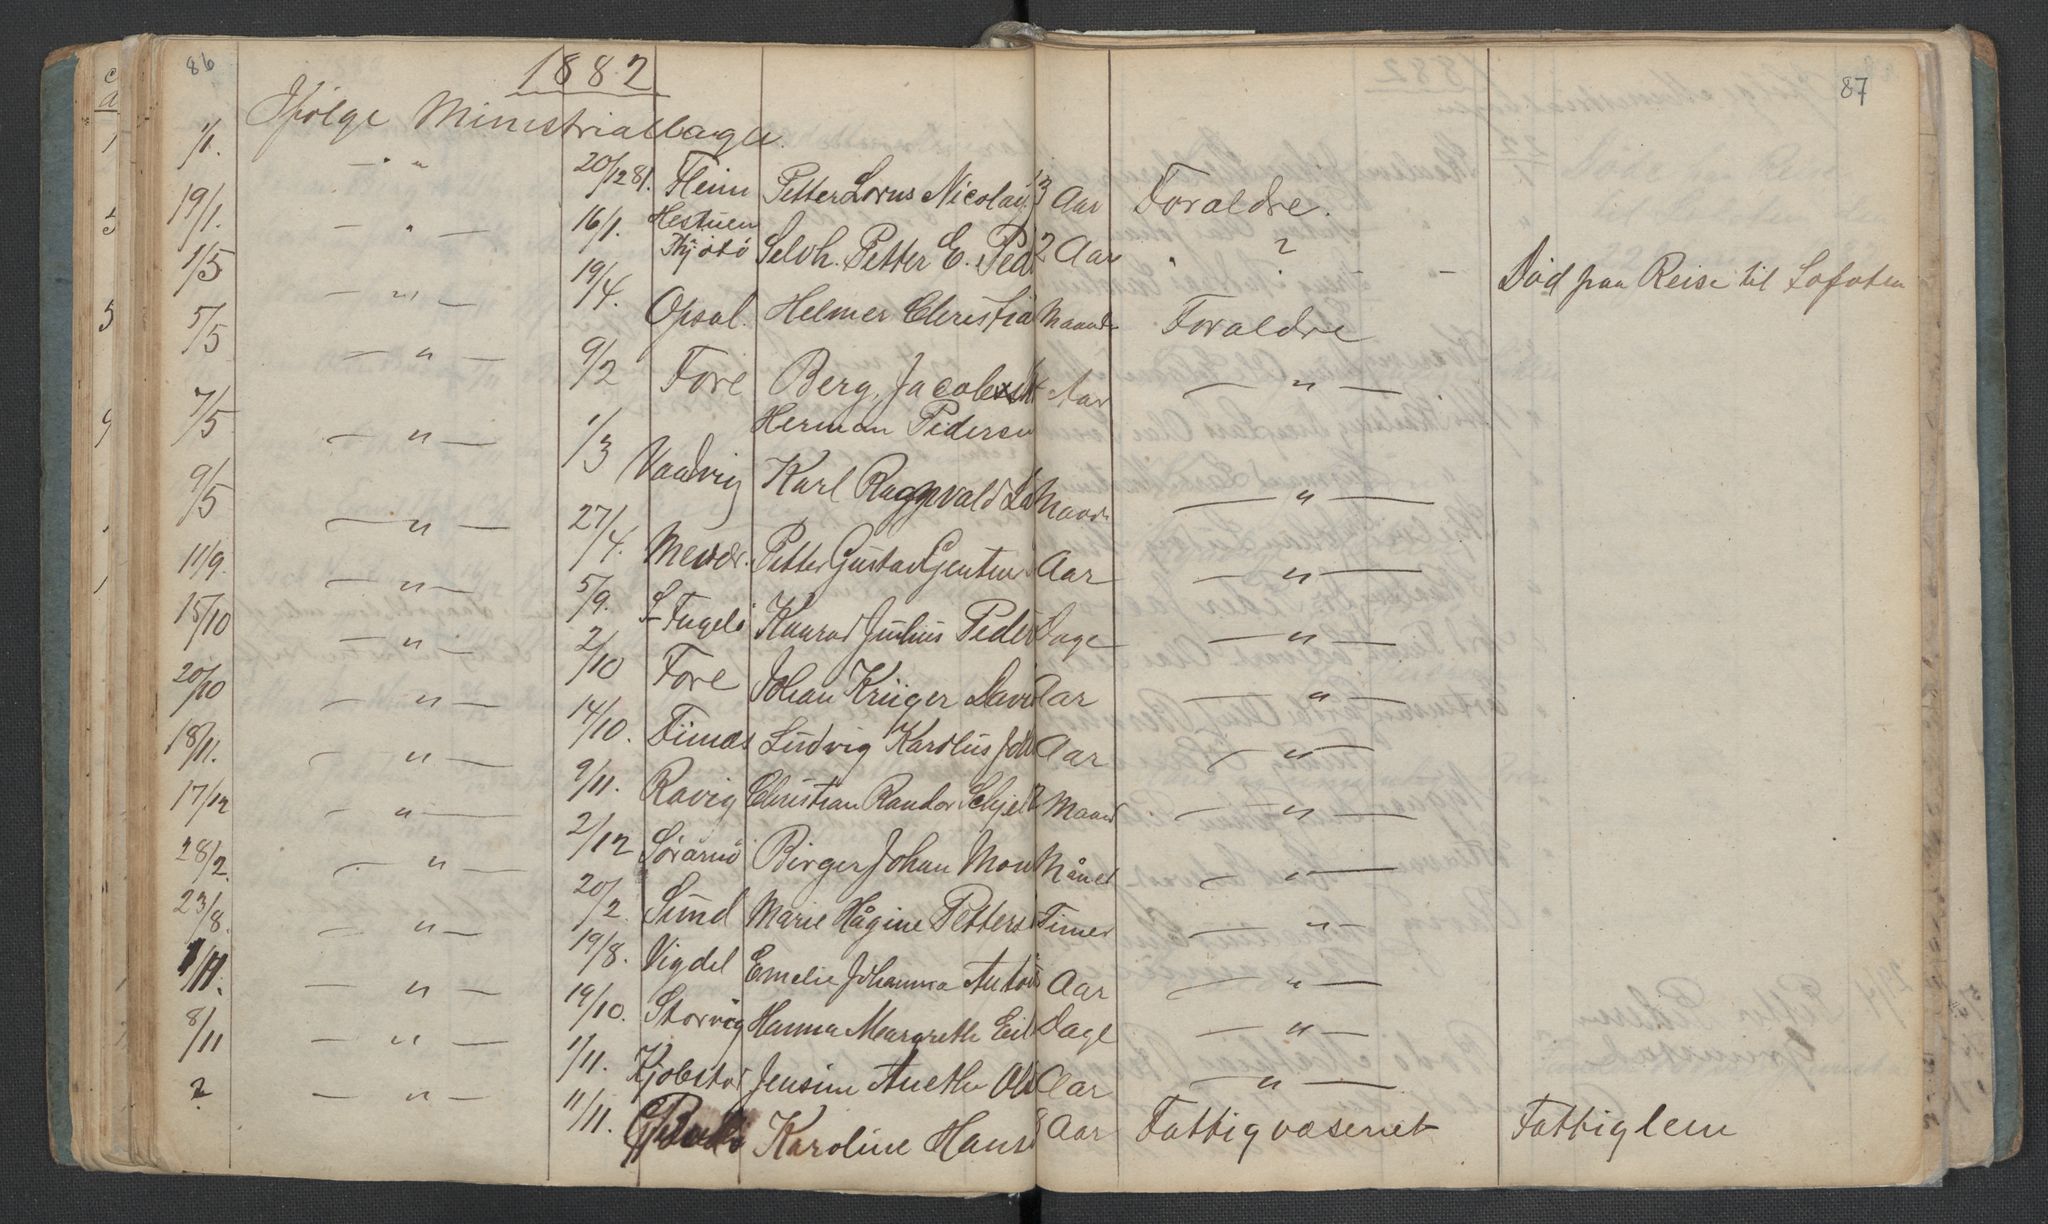 86
1882
87
Ifølge Ministrialbogen
1/1. — " 20/12 81. Heim Petter Lorns Nicolay 3 Aar Foraldre.
19/1. — " — 16/1. Hestuen
Selvh. Petter E. Ped 2 Aar " ? — Død paa Reise til Lofoten
1/5 — " — 19/4. Opsal. Helmer Christia Maand Foraldre
5/5 — " — 9/2 Fore Berg, Jacob Aar — " —
Herman Pedersen
7/5 — " — 1/3 Vaadvig Karl Ragnvald La Maan — " —
9/5 — " — 27/4. Petter Gustav Genten Aar — " —
11/9. — " — 5/9. S. Fugelø Konrad Julius Peder Dage — " —
15/10 — " — 2/10 Fore Johan Krüger Davi Aar — " —
20/10 — " — 14/10. Finnæs Ludvig Karolus Joh Aar — " —
18/11. — " — 9/11. Ravig Christian Randor Schjel 2 Maan — " —
17/12 — " — 2/12 Sørarnø Birger Johan Mon Måned — " —
28/2. — " — 20/2. Sund Marie Hågine Petters Timer — " —
23/8. — " — 19/8. Vigdel Emelie Johanna Anton Aar — " —
1/11. — " — 19/10. Storvig Hanna Margrethe Eil Dage — " —
8/11 — " — 1/11. Kjobstad Jensine Anethe Ols Aar — " —
? — " — 11/11. Karoline Hans 8 Aar Fattigvæsenet Fattiglem